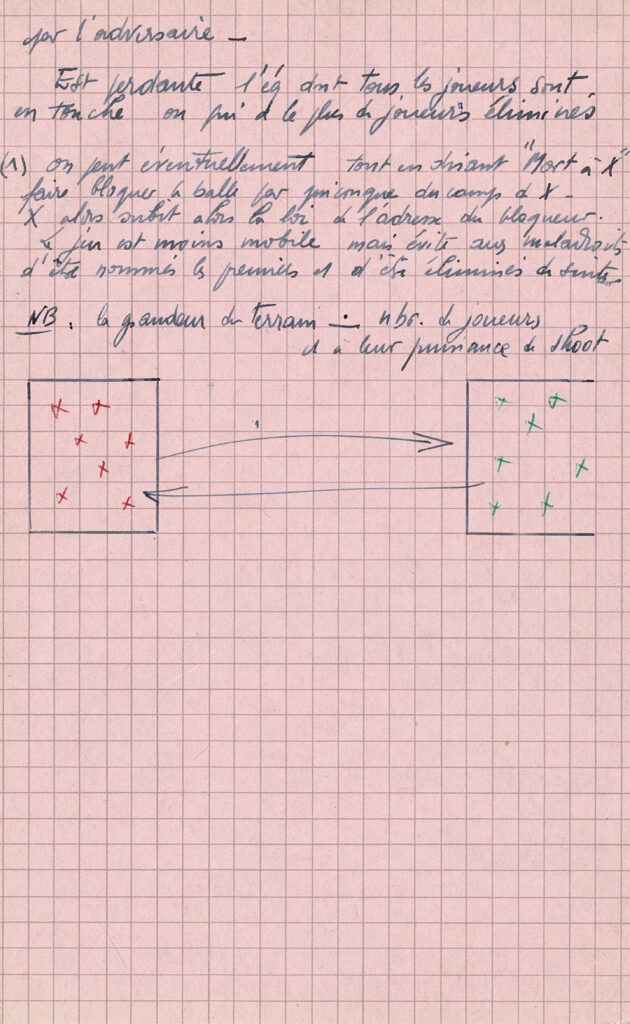 par l'adversaire –
Est perdante l'éq dont tous les joueurs sont
en touche ou qui a le plus de joueurs éliminés
(1) on peut éventuellement tout en disant "Mort à X"
faire bloquer la balle par quiconque du camp d X –
X alors subit alors la loi de l'adresse du bloqueur.
Le jeu est moins mobile mais évite aux maladroits
d'être nommés les premiers et d'être éliminés de suite
NB. la grandeur du terrain nbr. de joueurs
et à leur puissance de shoot